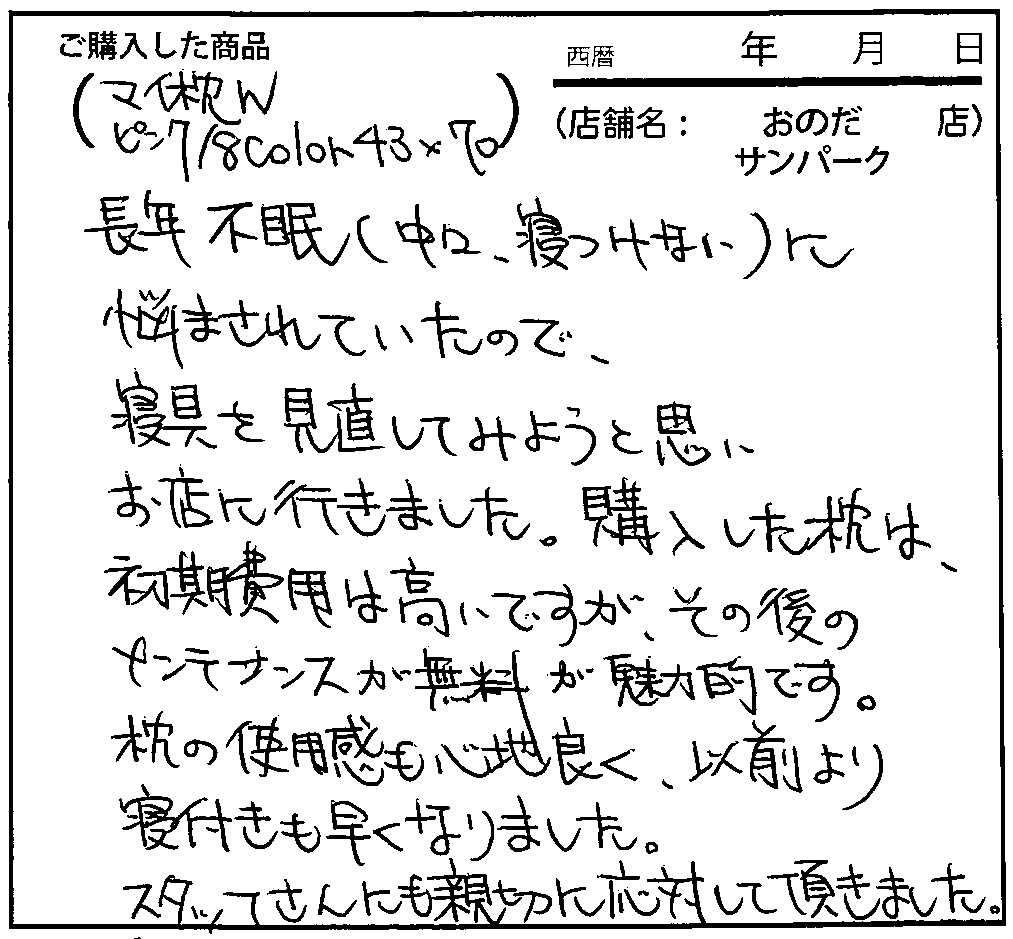 ご購入した商品
西暦 年 月 日
(マイ枕W
ピンク/8color43×70)
(店舗名: おのだ 店)
サンパーク
長年不眠(中口、寝つけない)に
悩まされていたので、
寝具を見直してみようと思い
お店に行きました。購入した枕は、
初期費用は高いですが、その後の
メンテナンスが無料が魅力的です。
枕の使用感も心地良く、以前より
寝付きも早くなりました。
スタッフさんにも親切に応対して頂きました。